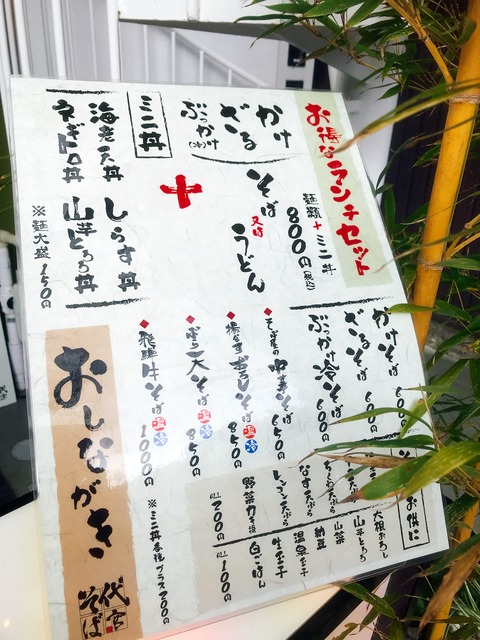 お得なランチセット
麺類+ミニ丼
800円(税込)
かけ
ざる
ぶっかけ(冷)
そば
又は
うどん
+
ミニ丼
海老天丼
ネギトロ丼
しらす丼
山芋とろろ丼
※麺大盛150円
かけそば 600円
ざるそば 600円
ぶっかけ冷そば 600円
そば屋の中華そば 650円
揚なすおろしそば 温冷 850円
とり天そば 温冷 850円
飛騨牛そば 温冷 1000円
※ミニ丼各種プラス200円
お供に
大根おろし
山芋とろろ
山菜
納豆
温泉玉子
生玉子
白ごはん
ALL 100円
ちくわ天ぷら
なす天ぷら
レンコン天ぷら
野菜かき揚
ALL 200円
おしながき
代官
そば